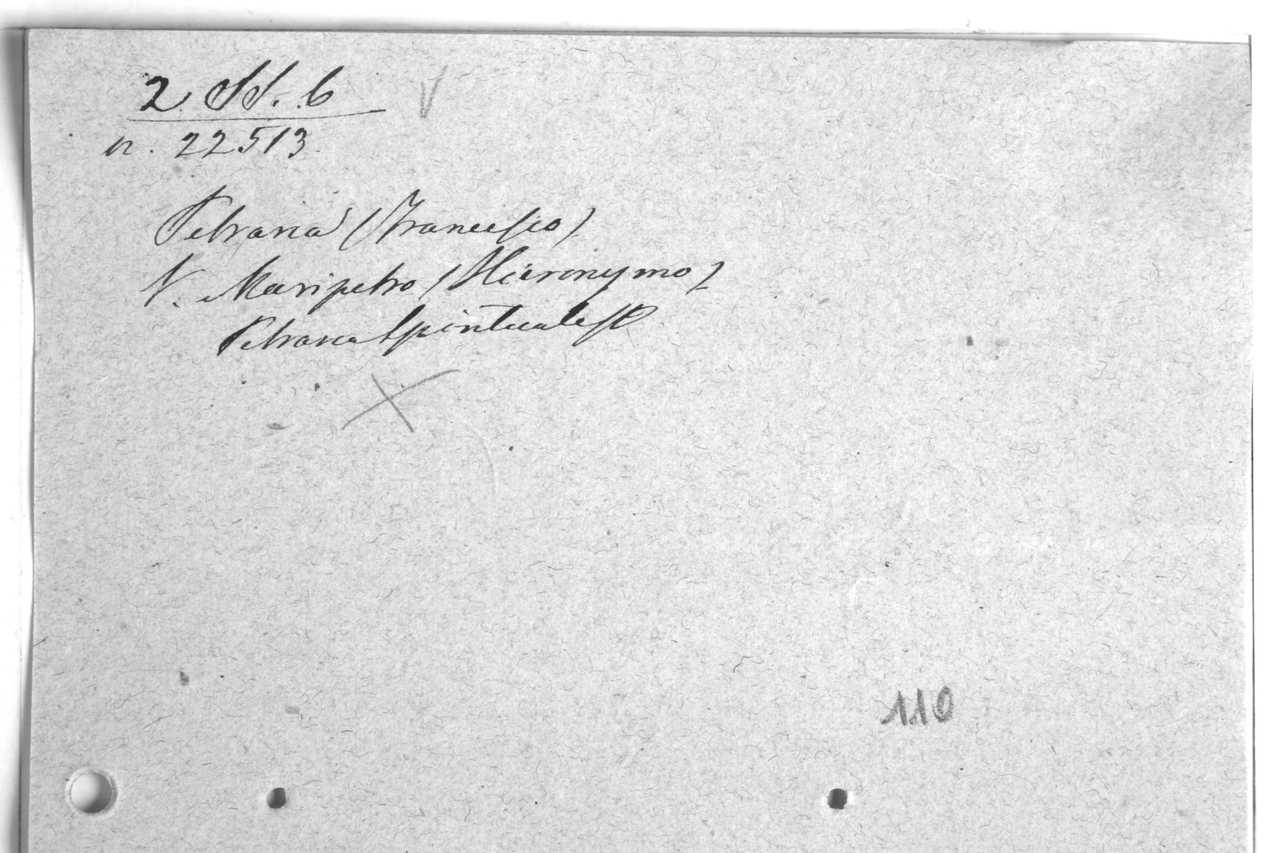 2 SS. 6
n. 22513.
Petrarca (Francesco)
V. Maripetro (Hieronymo)
Petrarca Spirituale
110